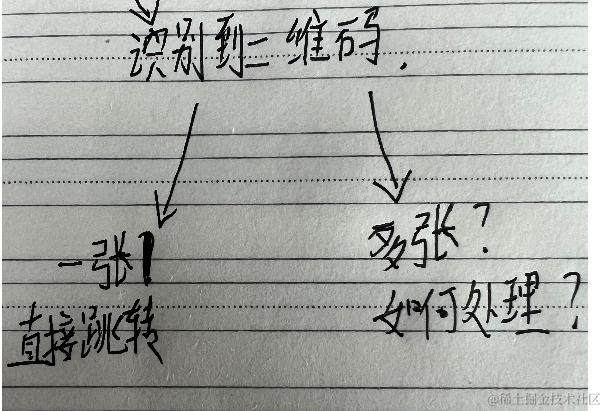 识别到二维码.
一张
多张？
直接跳转
如何处理？
@稀土掘金技术社区